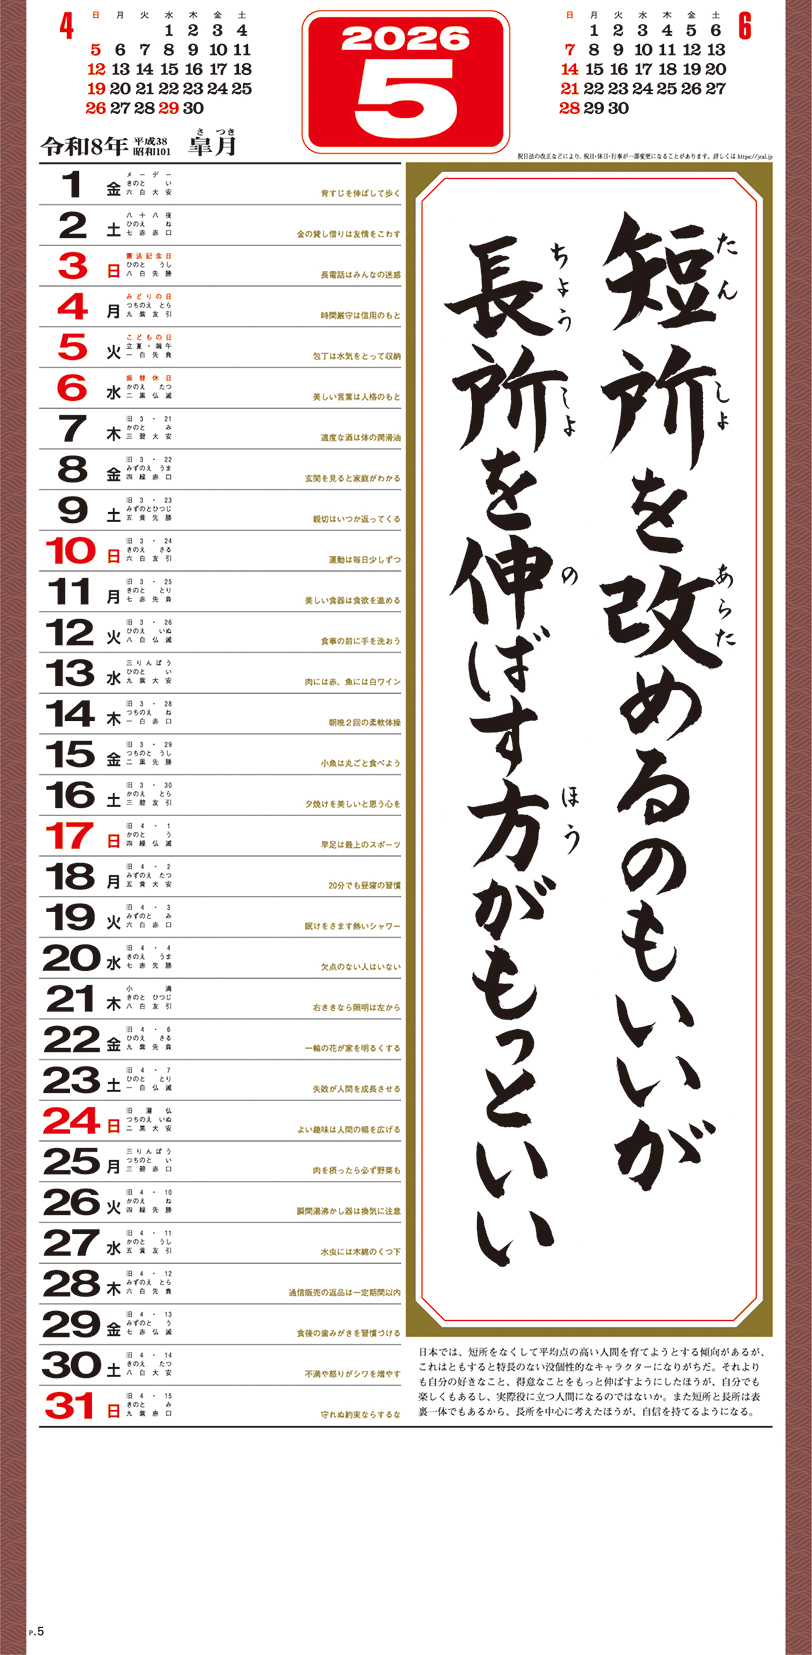 4
日 月 火 水 木 金 土
1 2 3 4
5 6 7 8 9 10 11
12 13 14 15 16 17 18
19 20 21 22 23 24 25
26 27 28 29 30
2026
5
6
日 月 火 水 木 金 土
1 2 3 4 5 6
7 8 9 10 11 12 13
14 15 16 17 18 19 20
21 22 23 24 25 26 27
28 29 30
令和8年 平成38 昭和101 皐月 さつき
祝日法の改正などにより、祝日・休日・行事が一部変更になることがあります。詳しくは https://jcal.jp
1 金 メーデー きのと い 六白大安 背すじを伸ばして歩く
2 土 八十八夜 ひのえ ね 七赤赤口 金の貸し借りは友情をこわす
3 日 憲法記念日 ひのと うし 八白先勝 長電話はみんなの迷惑
4 月 みどりの日 つちのえ とら 九紫友引 時間厳守は信用のもと
5 火 こどもの日 立夏・端午 一白先負 包丁は水気をとって収納
6 水 振替休日 かのえ たつ 二黒仏滅 美しい言葉は人格のもと
7 木 旧3・21 かのと み 三碧大安 適度な酒は体の潤滑油
8 金 旧3・22 みずのえ うま 四緑赤口 玄関を見ると家庭がわかる
9 土 旧3・23 みずのとひつじ 五黄先勝 親切はいつか返ってくる
10 日 旧3・24 きのえ さる 六白友引 運動は毎日少しずつ
11 月 旧3・25 きのと とり 七赤先負 美しい食器は食欲を進める
12 火 旧3・26 ひのえ いぬ 八白仏滅 食事の前に手を洗おう
13 水 三りんぼう ひのと い 九紫大安 肉には赤、魚には白ワイン
14 木 旧3・28 つちのえ ね 一白赤口 朝晩2回の柔軟体操
15 金 旧3・29 つちのと うし 二黒先勝 小魚は丸ごと食べよう
16 土 旧3・30 かのえ とら 三碧友引 夕焼けを美しいと思う心を
17 日 旧4・1 かのと う 四緑仏滅 早足は最上のスポーツ
18 月 旧4・2 みずのえ たつ 五黄大安 20分でも昼寝の習慣
19 火 旧4・3 みずのと み 六白赤口 眠けをさます熱いシャワー
20 水 旧4・4 きのえ うま 七赤先勝 欠点のない人はいない
21 木 小満 きのと ひつじ 八白友引 右ききなら照明は左から
22 金 旧4・6 ひのえ さる 九紫先負 一輪の花が家を明るくする
23 土 旧4・7 ひのと とり 一白仏滅 失敗が人間を成長させる
24 日 旧灌仏 つちのえ いぬ 二黒大安 よい趣味は人間の幅を広げる
25 月 三りんぼう つちのと い 三碧赤口 肉を摂ったら必ず野菜も
26 火 旧4・10 かのえ ね 四緑先勝 瞬間湯沸かし器は換気に注意
27 水 旧4・11 かのと うし 五黄友引 水虫には木綿のくつ下
28 木 旧4・12 みずのえ とら 六白先負 通信販売の返品は一定期間以内
29 金 旧4・13 みずのと う 七赤仏滅 食後の歯みがきを習慣づける
30 土 旧4・14 きのえ たつ 八白大安 不満や怒りがシワを増やす
31 日 旧4・15 きのと み 九紫赤口 守れぬ約束ならするな
短所を改めるのもいいが
たん しょ あらた
長所を伸ばす方がもっといい
ちょう しよ の ほう
日本では、短所をなくして平均点の高い人間を育てようとする傾向があるが、
これはともすると特長のない没個性的なキャラクターになりがちだ。それより
も自分の好きなこと、得意なことをもっと伸ばすようにしたほうが、自分でも
楽しくもあるし、実際役に立つ人間になるのではないか。また短所と長所は表
裏一体でもあるから、長所を中心に考えたほうが、自信を持てるようになる。
P.5